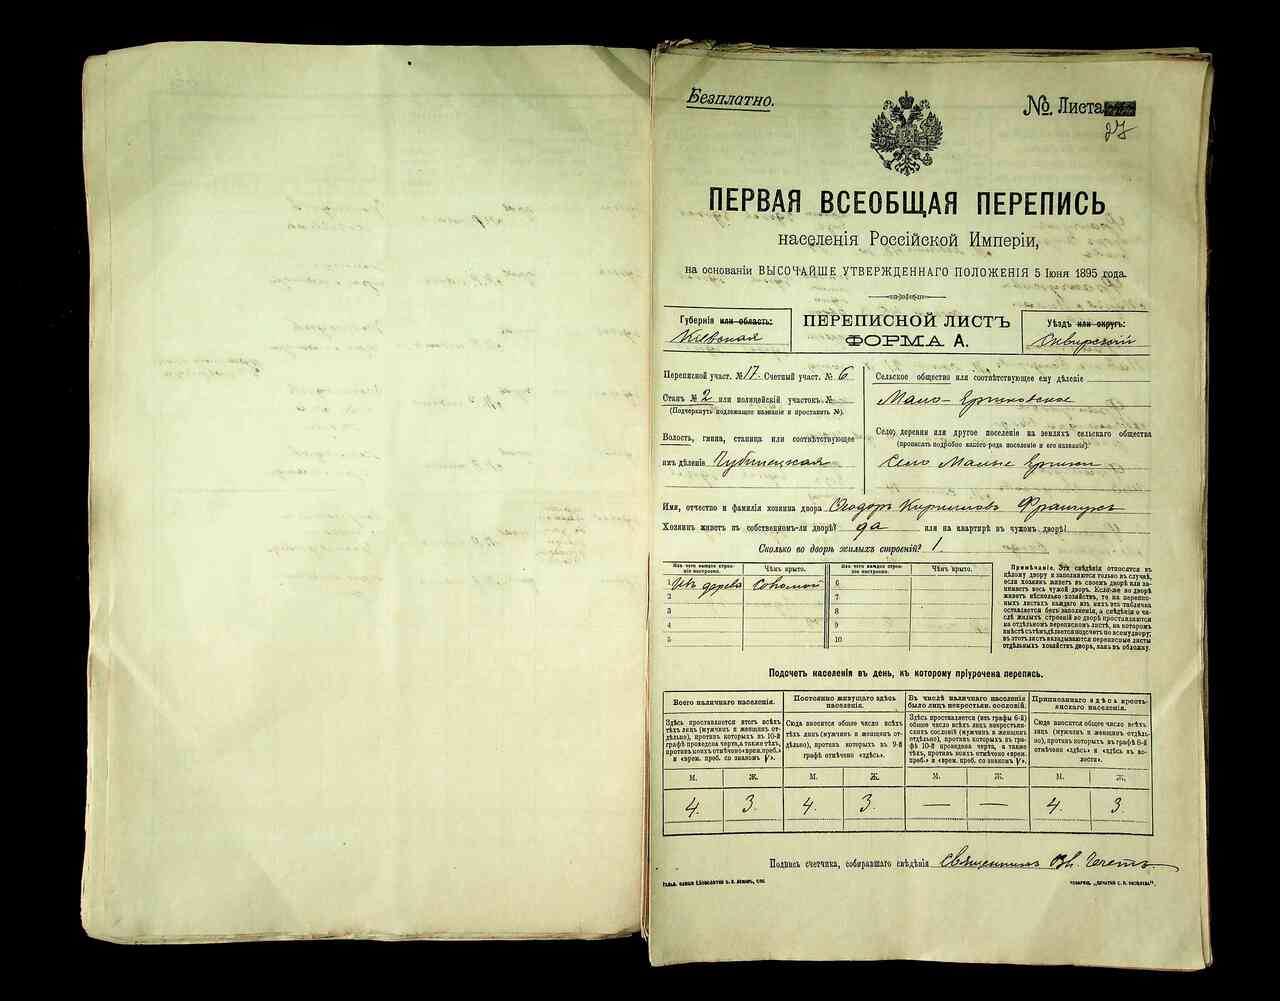 Безплатно.
№. Листа
27
ПЕРВАЯ ВСЕОБЩАЯ ПЕРЕПИСЬ
населенія Россійской Имперіи,
на основаніи ВЫСОЧАЙШЕ УТВЕРЖДЕННАГО ПОЛОЖЕНІЯ 5 Іюня 1895 года.
Губернія или область:
Кіевская
ПЕРЕПИСНОЙ ЛИСТЪ
ФОРМА А.
Уѣздъ или округъ:
Сквирскій
Переписной участ. №17. Счетный участ. № 6
Станъ № 2 или полицейскій участокъ №
(Подчеркнуть подлежащее названіе и проставить №).
Волость, гмина, станица или соотвѣтствующее
имъ дѣленіе Чубинецкая
Сельское общество или соотвѣтствующее ему дѣленіе
Мало-Ерчиковское
Село, деревня или другое поселеніе на земляхъ сельскаго общества
(прописать подробно какого рода поселеніе и его названіе).
Село Малые Ерчики
Имя, отчество и фамилія хозяина двора Ѳеодоръ Кирилловъ
Хозяинъ живетъ въ собственномъ-ли дворѣ? да или на квартирѣ въ чужомъ дворѣ?
Сколько во дворѣ жилыхъ строеній? 1.
Изъ чего каждое строеніе построено.
Чѣмъ крыто.
Изъ чего каждое строеніе построено.
Чѣмъ крыто.
1 Изъ дерева Соломой 6
2 7
3 8
4 9
5 10
Примѣчаніе. Эти свѣдѣнія относятся къ
цѣлому двору и заполняются только въ случаѣ,
если хозяинъ живетъ въ своемъ дворѣ или за-
нимаетъ весь чужой дворъ. Если-же во дворѣ
живетъ нѣсколько хозяйствъ, то на перепис-
ныхъ листахъ каждаго изъ нихъ эта табличка
оставляется безъ заполненія, а свѣдѣнія о чи-
слѣ жилыхъ строеній во дворѣ проставляются
на отдѣльномъ переписномъ листѣ, на которомъ
вмѣстѣ съ тѣмъ дѣлается подсчетъ по всему двору;
въ этотъ листъ вкладываются переписные листы
отдѣльныхъ хозяйствъ двора, какъ въ обложку.
Подсчетъ населенія въ день, къ которому пріурочена перепись.
Всего наличнаго населенія.
Здѣсь проставляется итогъ всѣхъ
тѣхъ лицъ (мужчинъ и женщинъ от-
дѣльно), противъ которыхъ въ 10-й
графѣ проведена черта, а также тѣхъ,
противъ коихъ отмѣчено «врем. преб.»
и «врем. преб. со знакомъ V».
Постоянно живущаго здѣсь
населенія.
Сюда вносится общее число всѣхъ
тѣхъ лицъ (мужчинъ и женщинъ от-
дѣльно), противъ которыхъ въ 9-й
графѣ отмѣчено «здѣсь».
Въ числѣ наличнаго населенія
было лицъ некрестьян. сословій.
Здѣсь проставляется (изъ графы 6-й)
общее число всѣхъ некрестьян-
скихъ сословій (мужчинъ и женщинъ
отдѣльно), противъ которыхъ въ гра-
фѣ 10-й проведена черта, а также
тѣхъ, противъ коихъ отмѣчено «врем.
преб.» и «врем. преб. со знакомъ V».
Приписаннаго здѣсь кресть-
янскаго населенія.
Сюда вносится общее число всѣхъ
лицъ (мужчинъ и женщинъ отдѣль-
но), противъ которыхъ въ графѣ 8-й
отмѣчено «здѣсь» и «здѣсь въ во-
лости».
М. Ж. М. Ж. М. Ж. М. Ж.
4. 3. 4. 3. — — 4. 3.
Подпись счетчика, собиравшаго свѣдѣнія Священникъ